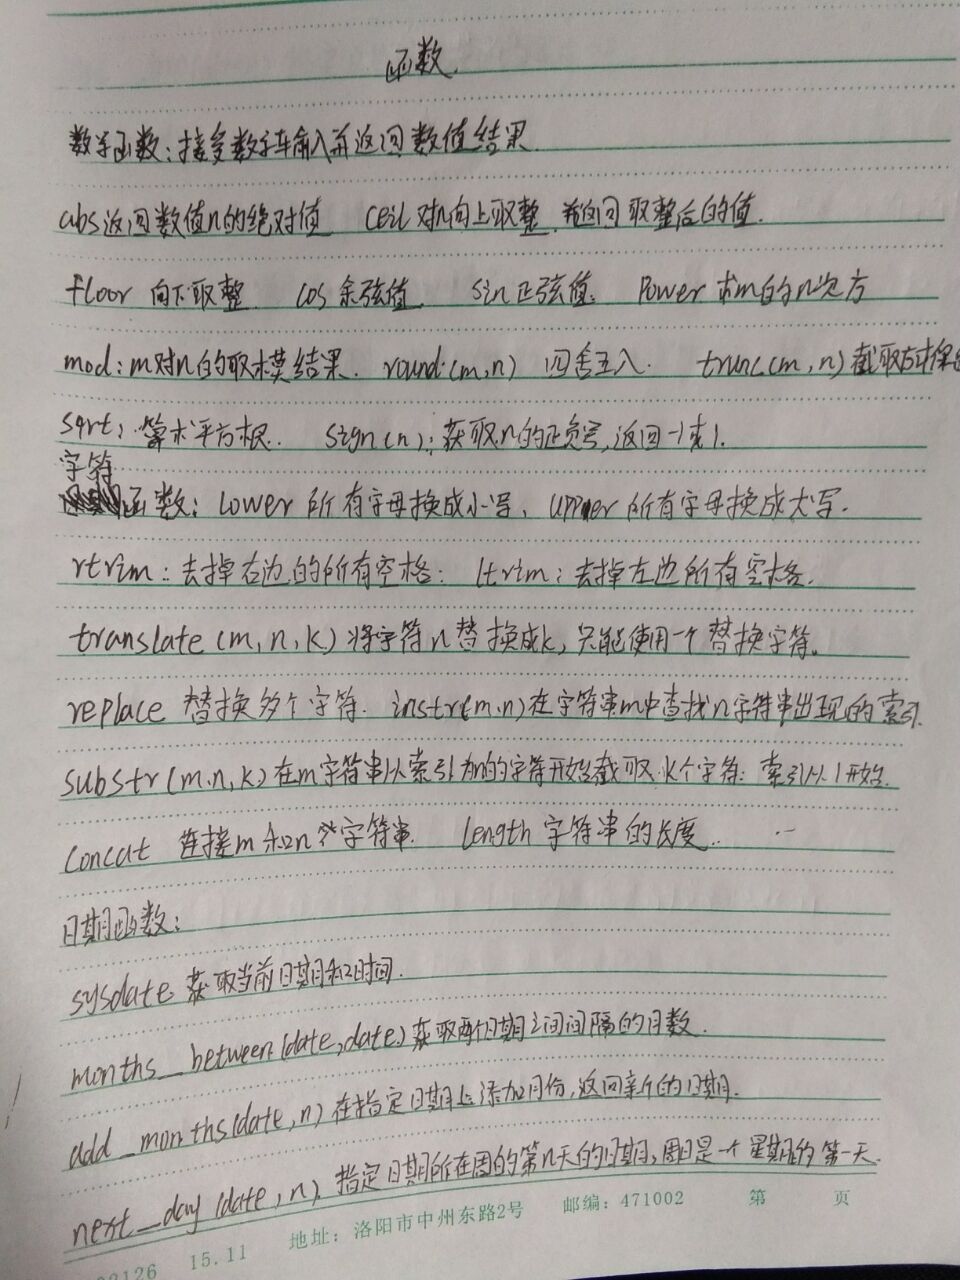 函数
数学函数：接受数字车输入并返回数值结果.
abs返回数值n的绝对值 ceil 对n向上取整,并返回取整后的值.
floor 向下取整 cos 余弦值 sin 正弦值. Power 求m的n次方
mod:m对n的取模结果. round(m,n) 四舍五入. trunc(m,n)截取时保
sqrt: 算术平方根. sign(n):获取n的正负号,返回-1或1.
字符
函数: Lower 所有字母换成小写、upper 所有字母换成大写.
rtrim:去掉右边的所有空格: ltrim:去掉左边所有空格.
translate(m,n,k)将字符n替换成k,只能使用一个替换字符。
replace 替换多个字符. instr(m,n)在字符串m中查找n字符串出现的索引.
substr(m,n,k)在m字符串从索引为n的字符开始截取k个字符:索引从1开始.
concat 连接m和n字符串. Length 字符串的长度..
日期函数:
sysdate 获取当前日期和时间.
months_between(date,date)获取两个日期之间间隔的月数.
add_months(date,n)在指定日期上添加月份,返回新的日期.
next_day(date,n),指定日期所在周的第n天的日期,周日是一个星期的第一天.
02126 15.11 地址:洛阳市中州东路2号 邮编:471002 第 页